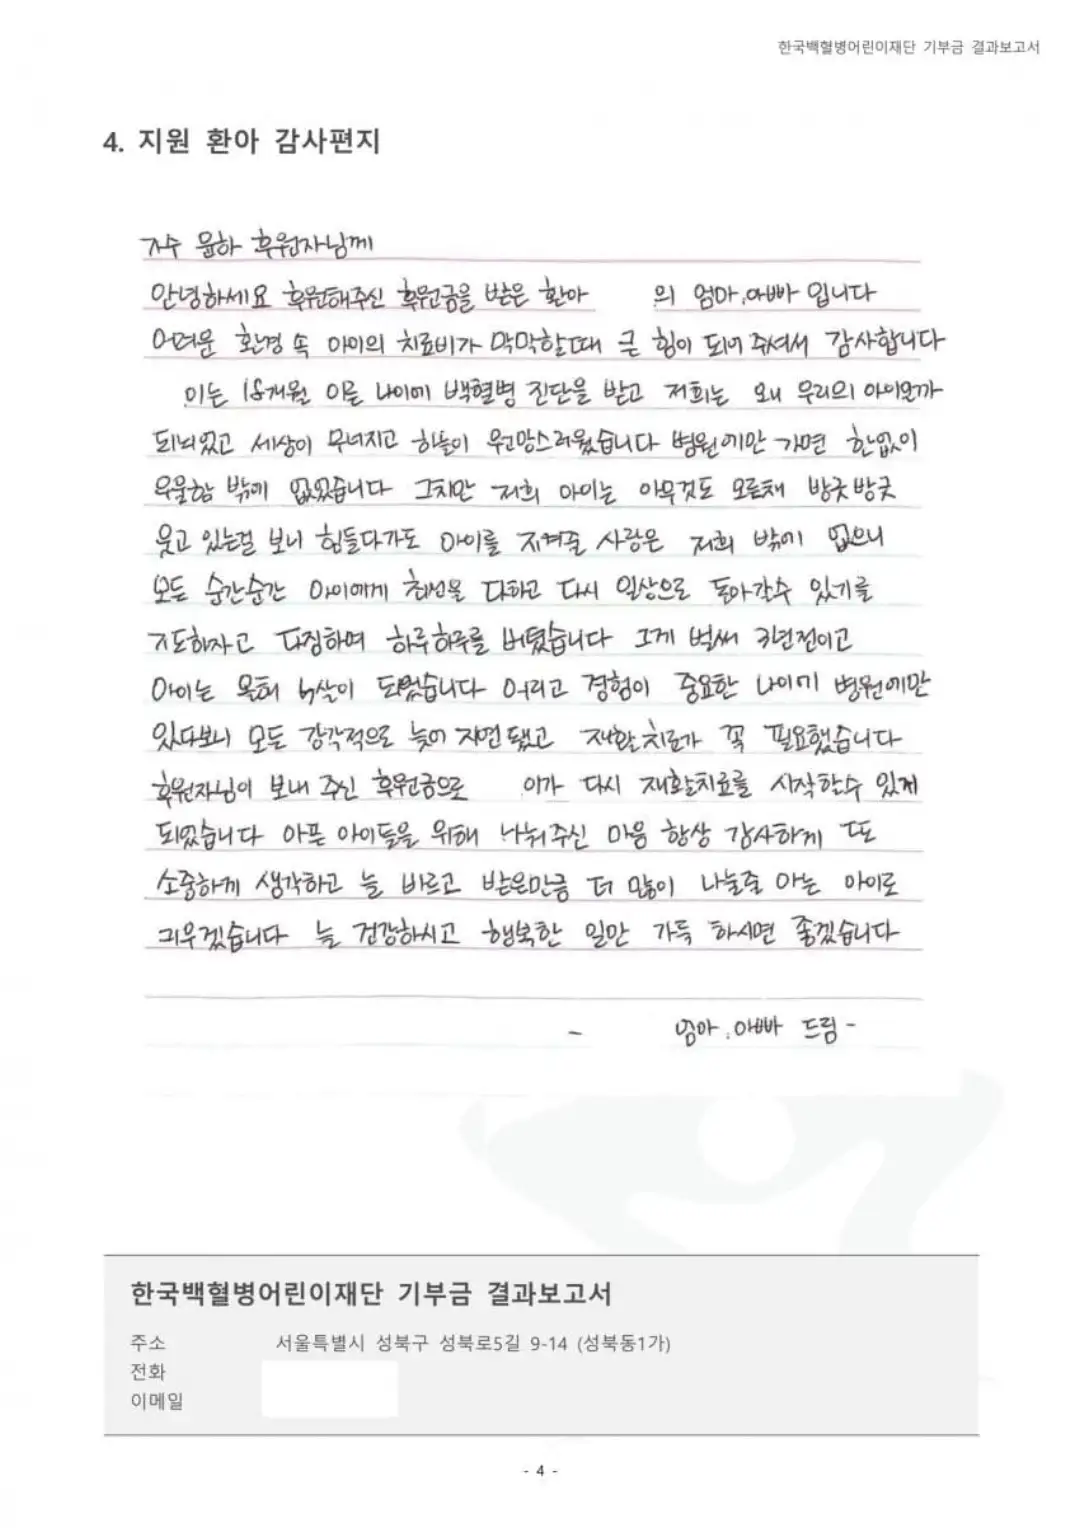 한국백혈병어린이재단 기부금 결과보고서
4. 지원 환아 감사편지
가수 윤하 후원자님께
안녕하세요 후원해주신 후원금을 받은 환아 의 엄마,아빠 입니다
어려운 환경 속 아이의 치료비가 막막할때 큰 힘이 되어 주셔서 감사합니다
이는 18개월 이른 나이에 백혈병 진단을 받고 저희는 왜 우리의 아이일까
되뇌였고 세상이 무너지고 하늘이 원망스러웠습니다 병원에만 가면 한없이
우울함 밖에 없었습니다 그치만 저희 아이는 아무것도 모른채 방긋방긋
웃고 있는걸 보니 힘들다가도 아이를 지켜줄 사람은 저희 밖에 없으니
모든 순간순간 아이에게 최선을 다하고 다시 일상으로 돌아갈수 있기를
기도하자고 다짐하며 하루하루를 버텼습니다 그게 벌써 3년전이고
아이는 올해 5살이 되었습니다 어리고 경험이 중요한 나이에 병원에만
있다보니 모든 감각적으로 늦어 지연됐고 재활치료가 꼭 필요했습니다
후원자님이 보내 주신 후원금으로 이가 다시 재활치료를 시작할수 있게
되었습니다 아픈 아이들을 위해 나눠주신 마음 항상 감사하게 또
소중하게 생각하고 늘 바르고 받은만큼 더 많이 나눌줄 아는 아이로
키우겠습니다 늘 건강하시고 행복한 일만 가득 하시면 좋겠습니다
- 엄마,아빠 드림 -
한국백혈병어린이재단 기부금 결과보고서
주소 서울특별시 성북구 성북로5길 9-14 (성북동1가)
전화
이메일
- 4 -